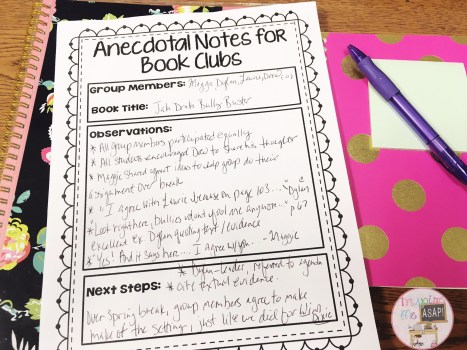 Anecdotal Notes for
Book Clubs
Group Members: Maggie, Dylan, Laurie, Drew
Book Title: Jake Drake Bully Buster
Observations:
* All group members participated equally
* All students encouraged Drew to share his thoughts
* Maggie shared great ideas to help group do their
assignment over break
* "I agree with Laurie because on page 103..." Dylan
* "Look right here, bullies don't good me anymore..." p.67
excellent ex. Dylan quoting text/evidence
* "Yes! And it says here.... I agree w/ Dylan" - Maggie
* Dylan - Leader, referred to agenda
Next Steps: * cite textual evidence.
Over Spring break, group members agree to make
make of the setting, just like we did for
Dixie
inspiring
me ASAP!